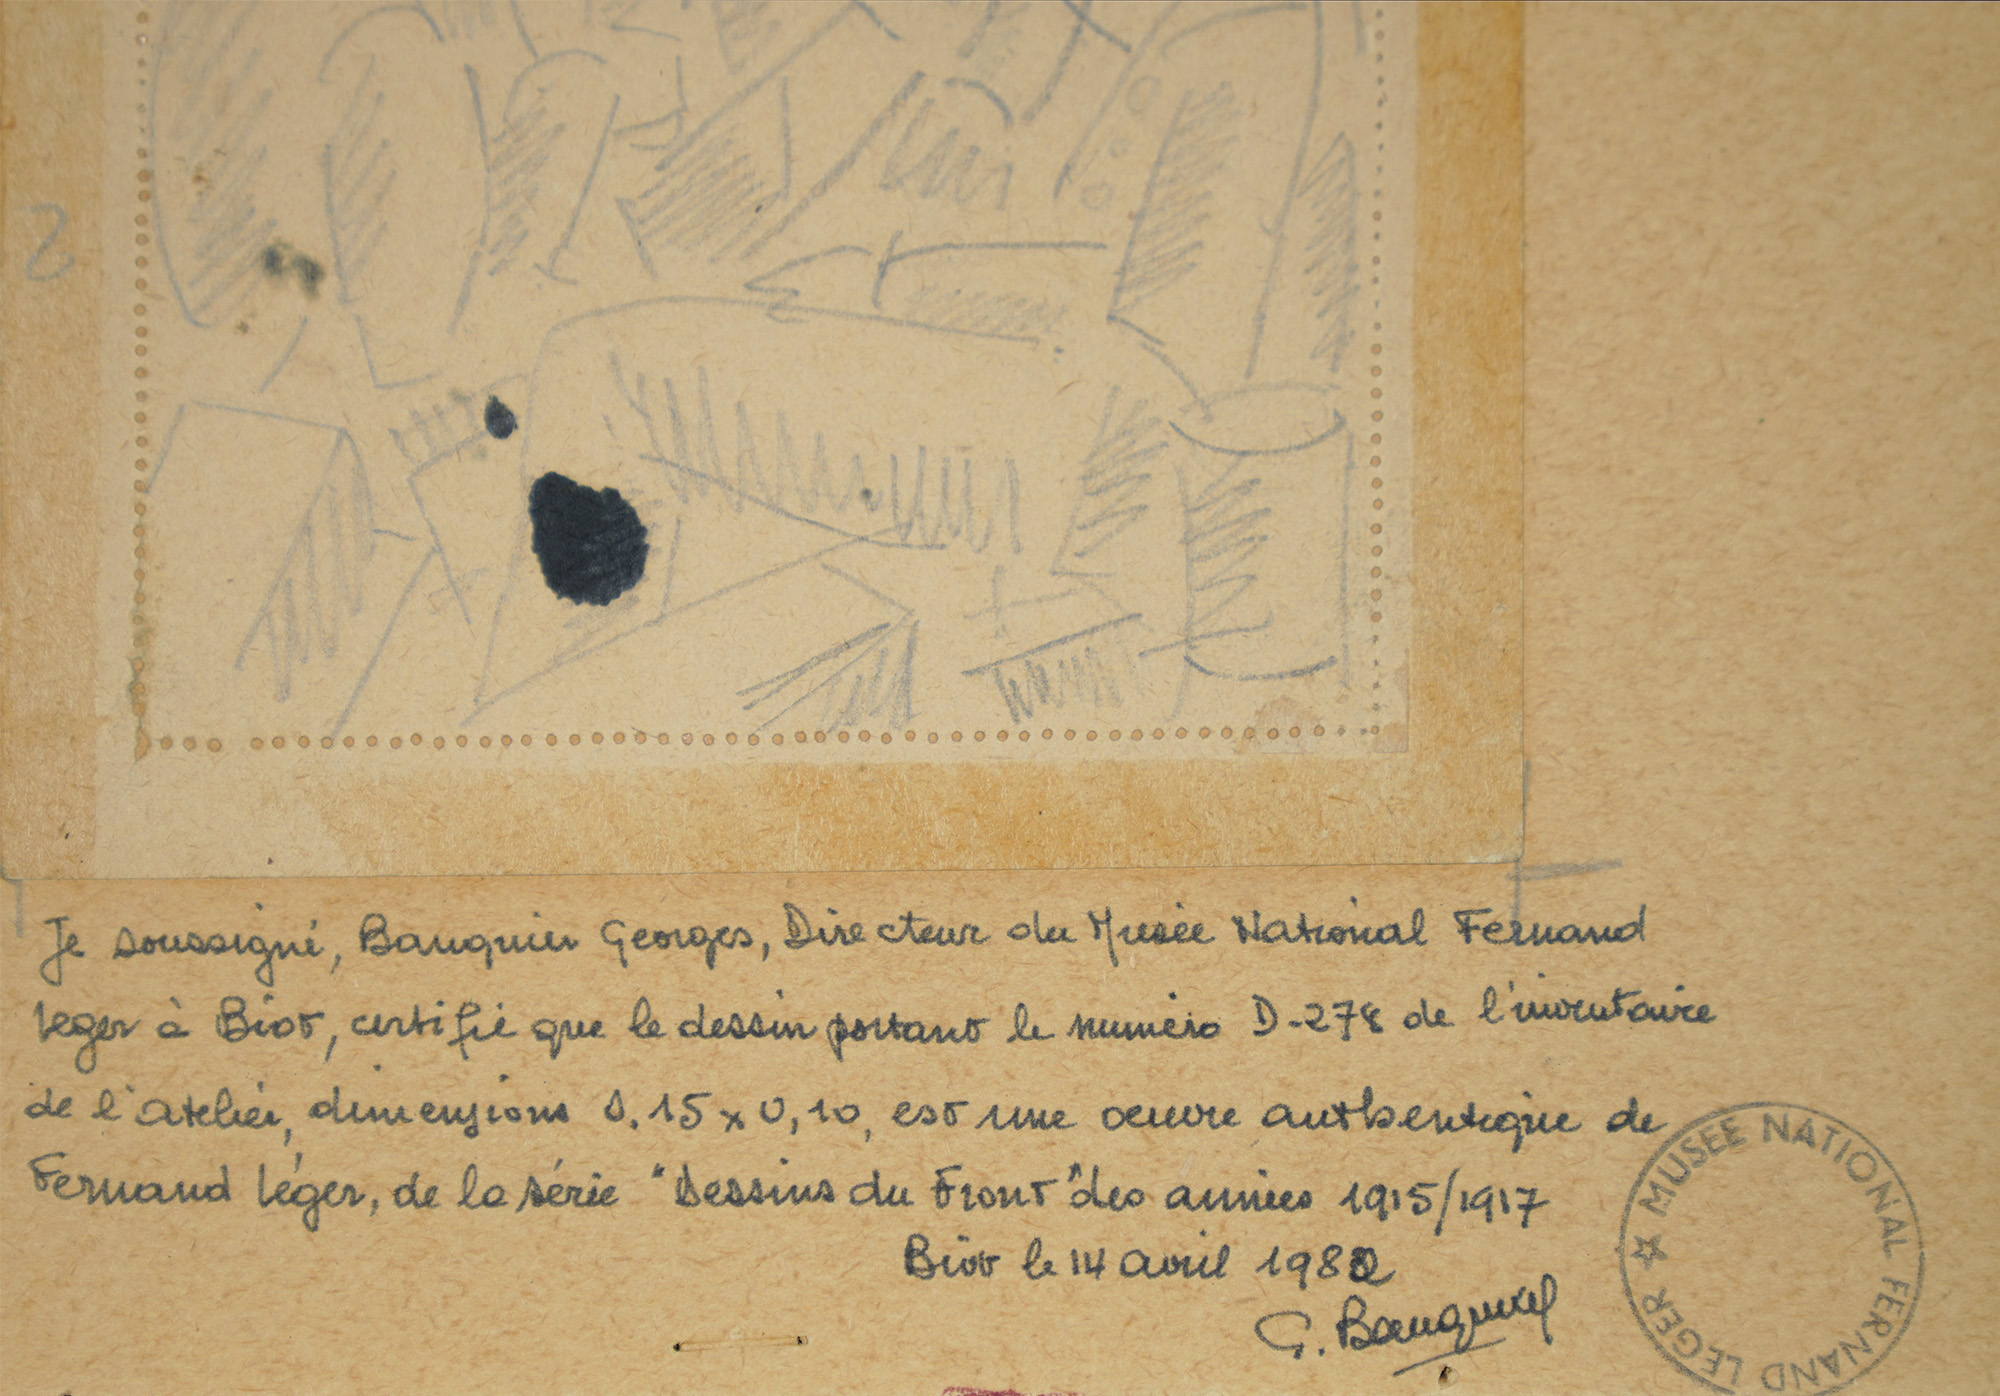 2
Je soussigné, Bauquier Georges, Directeur du Musée National Fernand
Leger à Biot, certifie que le dessin portant le numéro D-278 de l'inventaire
de l'atelier, dimensions 0.15 x 0,10, est une oeuvre authentique de
Fernand Léger, de la série "Dessins du Front" des années 1915/1917
Biot le 14 avril 1982
G. Bauquier
MUSEE NATIONAL FERNAND LEGER